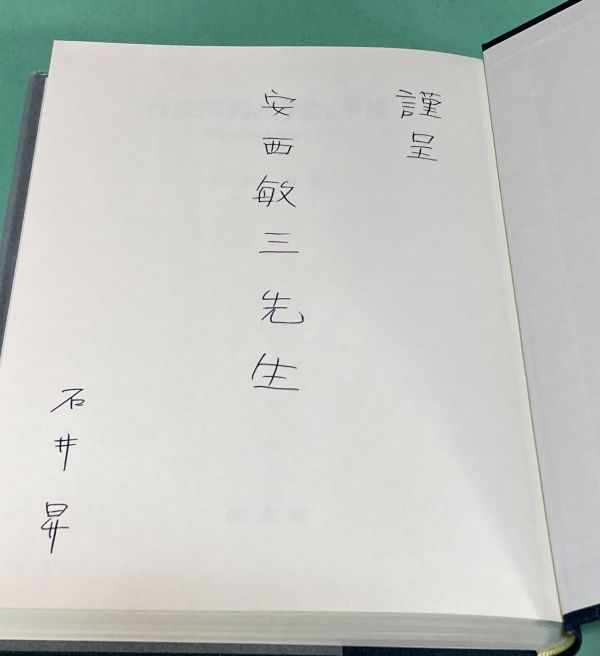 謹呈
安西敏三先生
石井昇